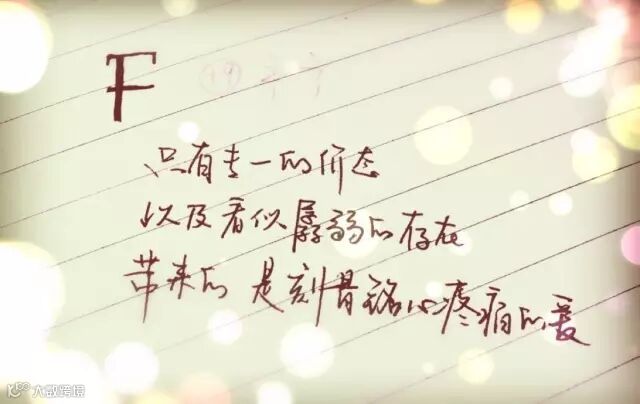 F
只有专一的价态
以及看似孱弱的存在
带来的是刻骨铭心疼痛的爱
大数跨境